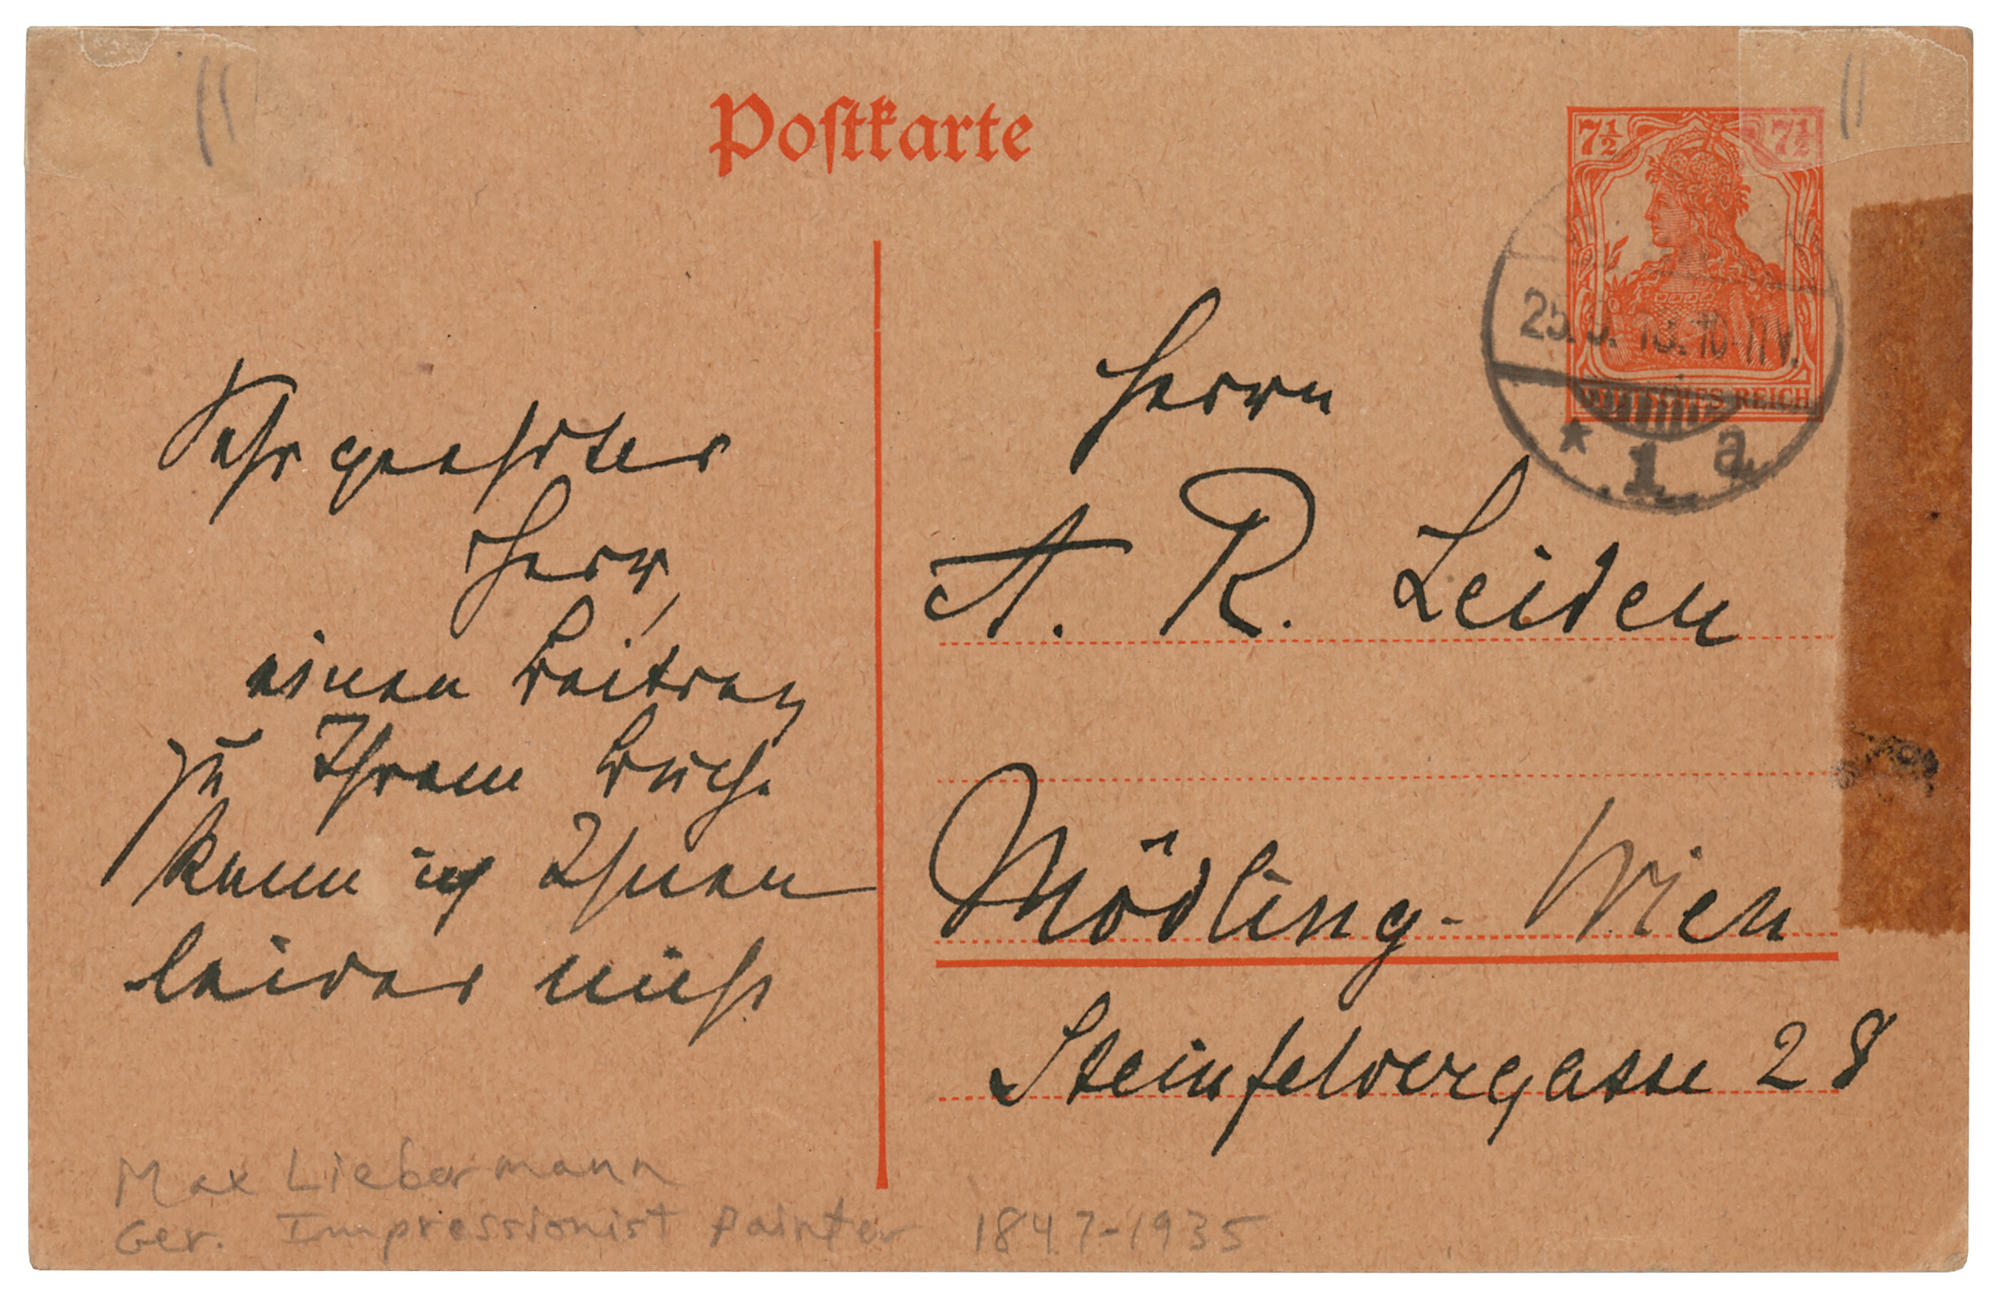 Postkarte
7½ 7½
DEUTSCHES REICH
* 1 a
Sehr geehrter
Herr,
einen Beitrag
zu Ihrem Buch
kann ich Ihnen
leider nicht
Herrn
A. R. Leiden
Mödling-Wien
Steinfeldergasse 28
Max Liebermann
Ger. Impressionist painter 1847-1935